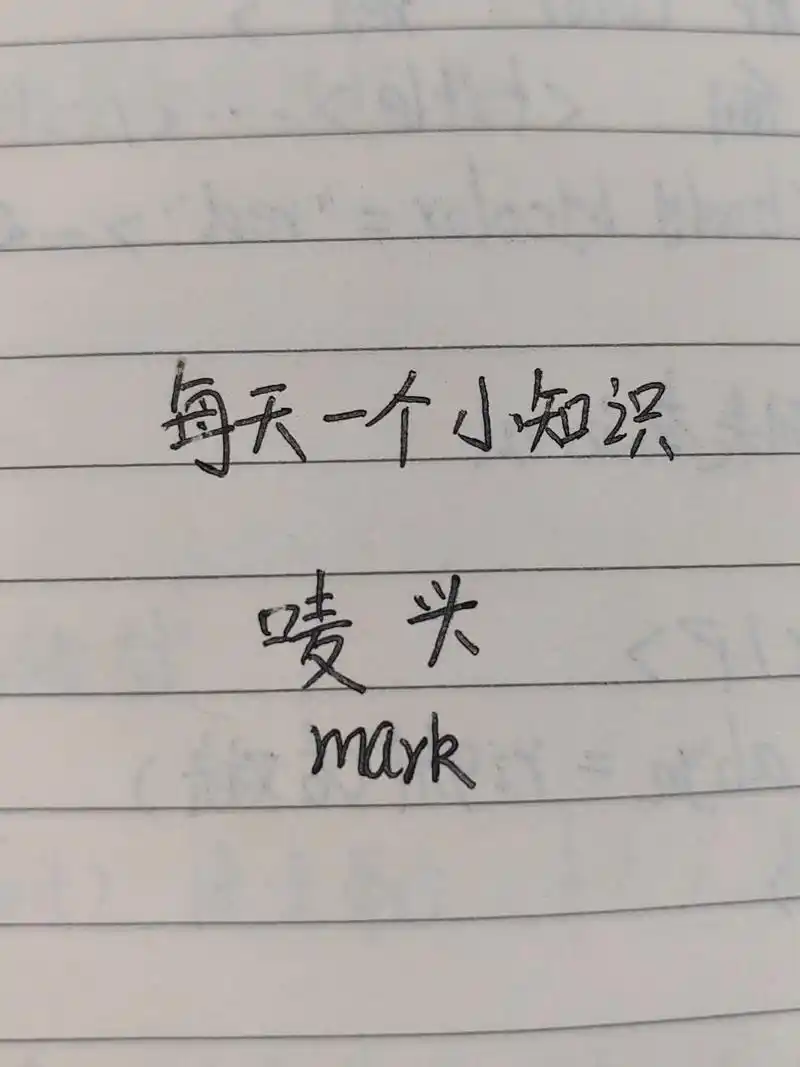 每天一个小知识
唛头
mark